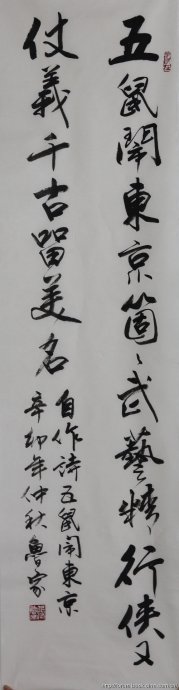 五鼠鬧東京箇々武藝精行俠又
仗義千古留美名
自作詩五鼠闹東京
辛卯年仲秋魯家